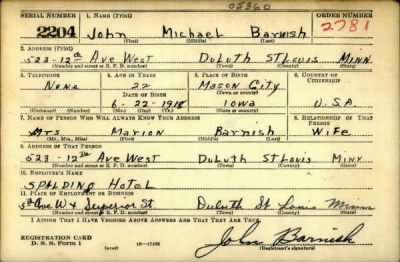 05360
SERIAL NUMBER 1. NAME (Print) ORDER NUMBER
2204 John Michael Barnish 2781
(First) (Middle) (Last)
2. ADDRESS (Print)
523-12th Ave West Duluth St Louis Minn
(Number and street or R. F. D. number) (Town) (County) (State)
3. TELEPHONE 4. AGE IN YEARS 5. PLACE OF BIRTH 6. COUNTRY OF CITIZENSHIP
None 22 Mason City
DATE OF BIRTH (Town or county)
6-22-1918 Iowa U.S.A.
(Exchange) (Number) (Mo.) (Day) (Yr.) (State or country)
7. NAME OF PERSON WHO WILL ALWAYS KNOW YOUR ADDRESS 8. RELATIONSHIP OF THAT PERSON
Mrs Marion Barnish Wife
(Mr., Mrs., Miss) (First) (Middle) (Last)
9. ADDRESS OF THAT PERSON
523-12th Ave West Duluth St Louis Minn
(Number and street or R. F. D. number) (Town) (County) (State)
10. EMPLOYER'S NAME
SPALDING Hotel
11. PLACE OF EMPLOYMENT OR BUSINESS
5th Ave W & Superior St Duluth St Louis Minn
(Number and street or R. F. D. number) (Town) (County) (State)
I AFFIRM THAT I HAVE VERIFIED ABOVE ANSWERS AND THAT THEY ARE TRUE.
REGISTRATION CARD
D. S. S. Form 1 John Barnish
(Registrant's signature)